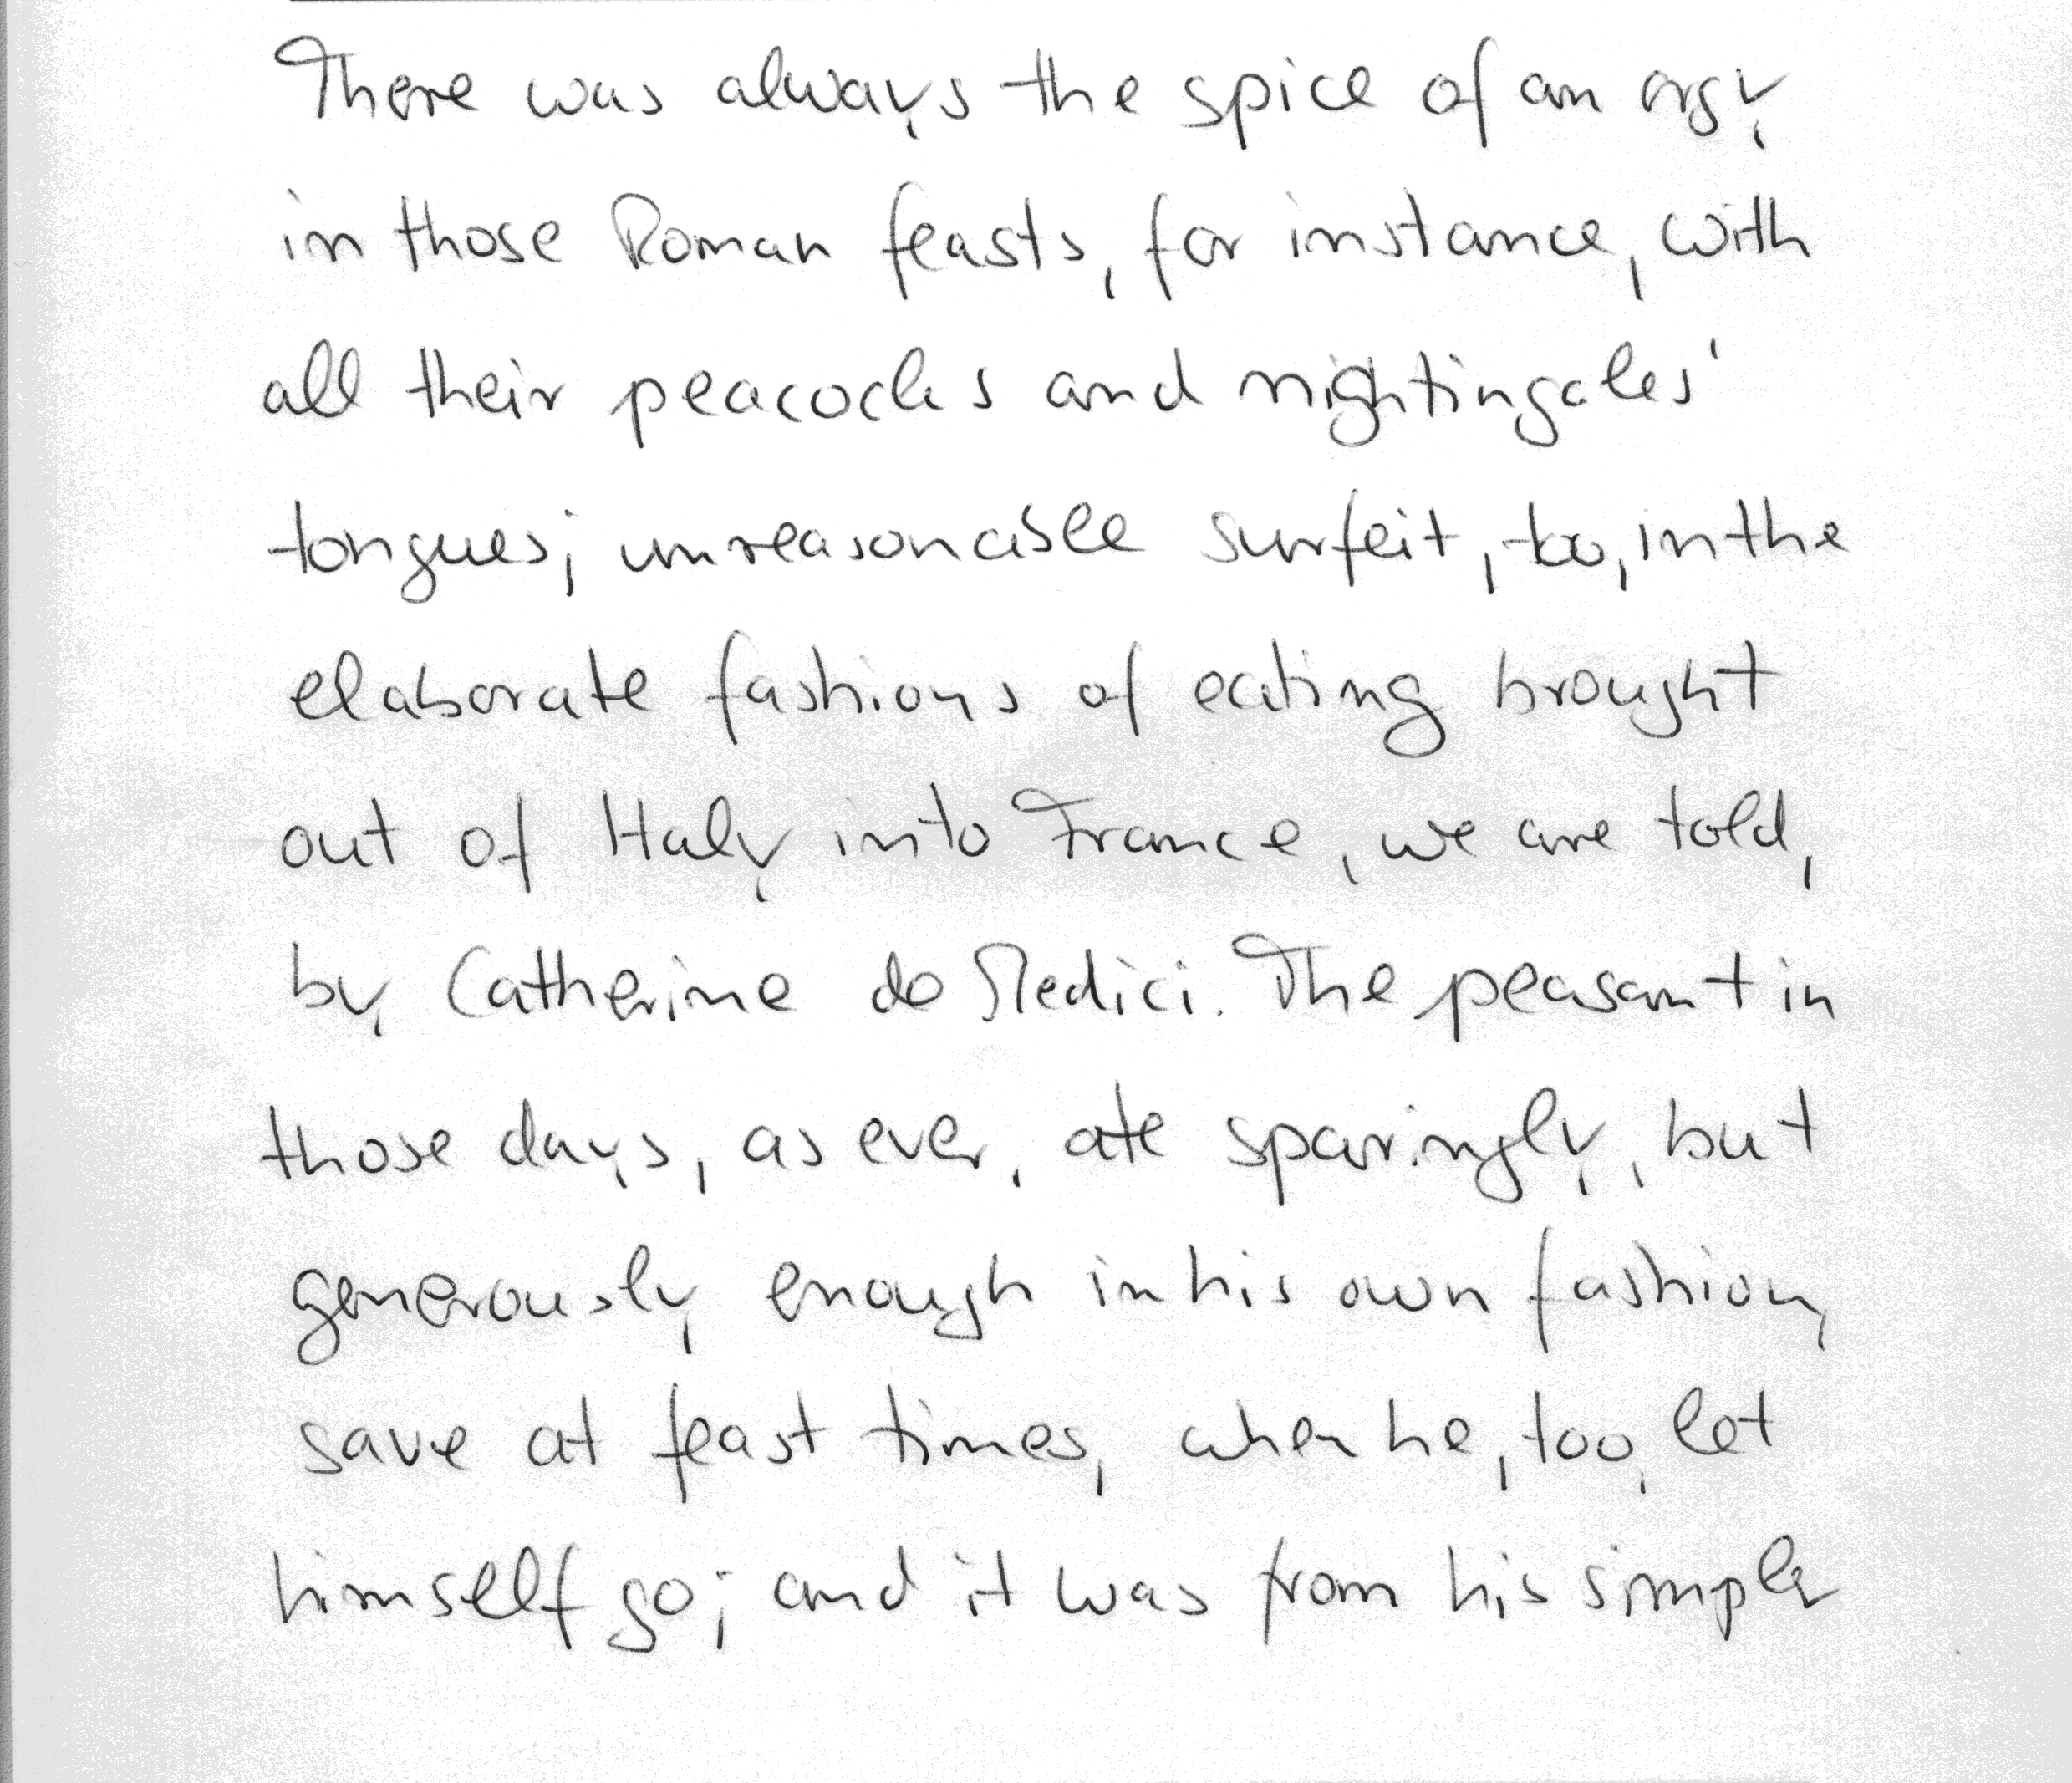 There was always the spice of an orgy
in those Roman feasts, for instance, with
all their peacocks and nightingales'
tongues; unreasonable surfeit, too, in the
elaborate fashions of eating brought
out of Italy into France, we are told,
by Catherine de Medici. The peasant in
those days, as ever, ate sparingly, but
generously enough in his own fashion,
save at feast times, when he, too, let
himself go; and it was from his simpler